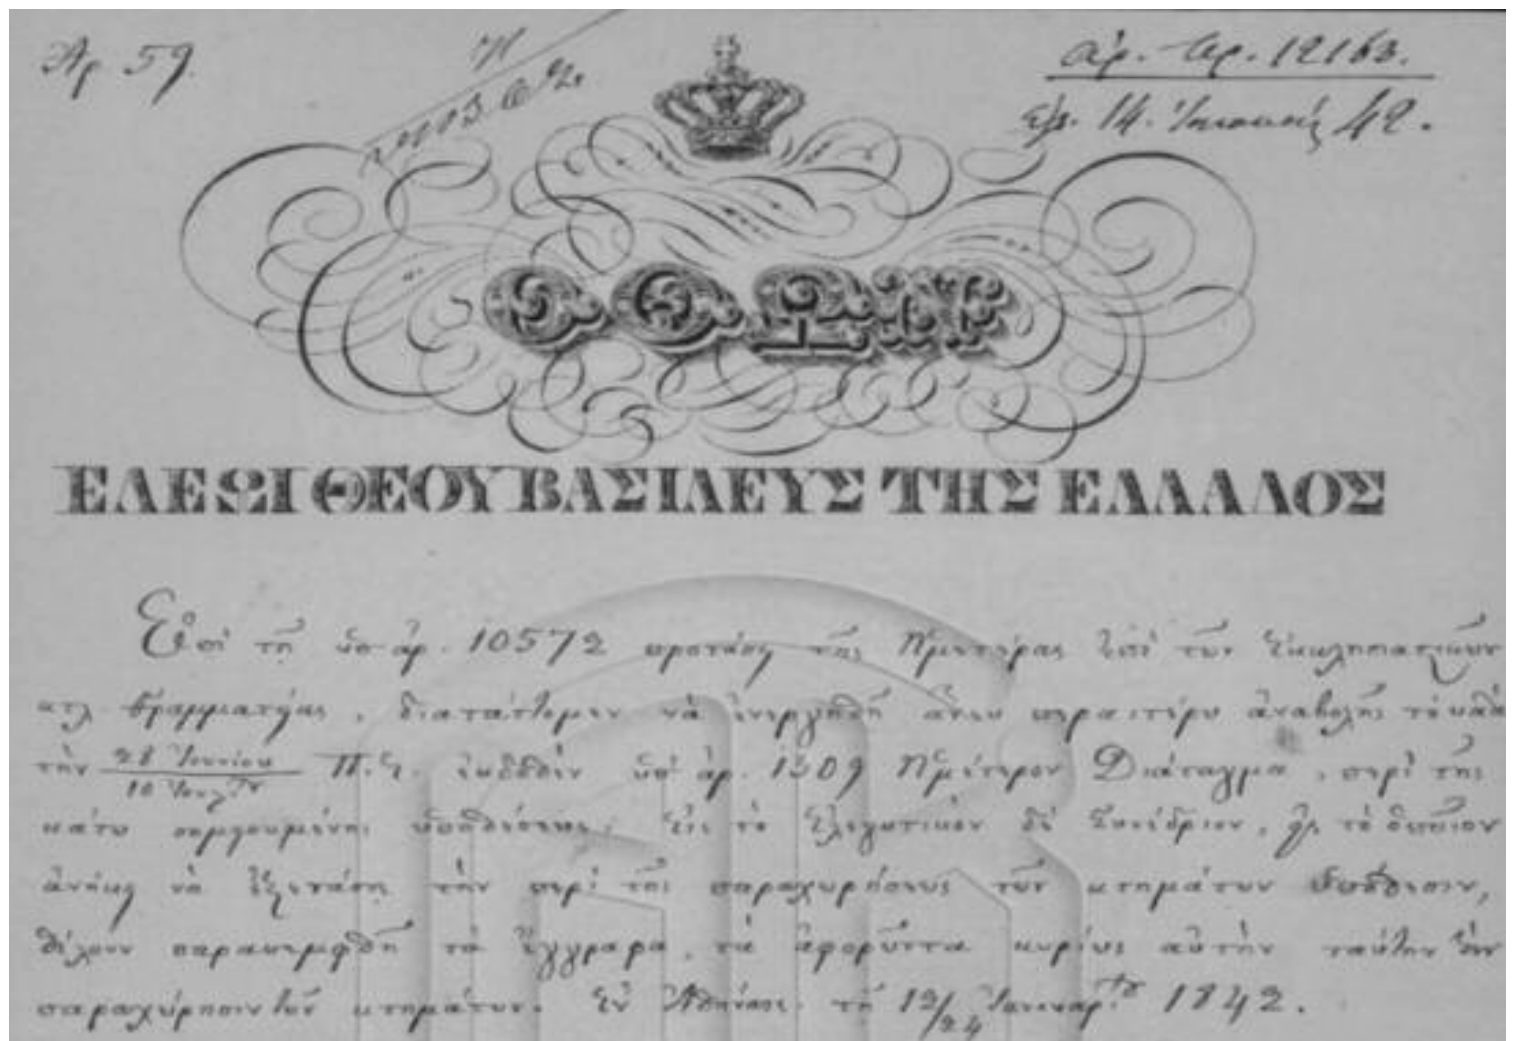 Ἀρ 59.
ἀρ. πρ. 12163.
14. Ἰανουαρ 42.
ΟΘΩΝ
ΕΛΕΩΙ ΘΕΟΥ ΒΑΣΙΛΕΥΣ ΤΗΣ ΕΛΛΑΔΟΣ
Ἐπὶ τῇ ὑπ ἀρ. 10572 προτάσει τῆς Ἡμετέρας ἐπὶ τῶν Ἐκκλησιαστικῶν
κτλ Γραμματείας, διατάττομεν νὰ ἐνεργηθῇ ἄνευ περαιτέρω ἀναβολῆς τὸ κατὰ
τὴν 28 Ἰουνίου
10 Ἰουλίου Π.Ἔ. ἐκδοθὲν ὑπ ἀρ. 1509 Ἡμέτερον Διάταγμα, περὶ τῆς
κάτω σημειουμένης ὑποθέσεως. Εἰς τὸ Ἐλεγκτικὸν δὲ Συνέδριον, εἰς τὸ ὁποῖον
ἀνήκει νὰ ἐξετάσῃ τὴν περὶ τῆς παραχωρήσεως τῶν κτημάτων ὑπόθεσιν,
θέλουν παραπεμφθῆ τὰ ἔγγραφα, τὰ ἀφορῶντα κυρίως αὐτὴν ταύτην τὴν
παραχώρησιν τῶν κτημάτων. Ἐν Ἀθήναις τῇ 12/24 Ἰανουαρίου 1842.